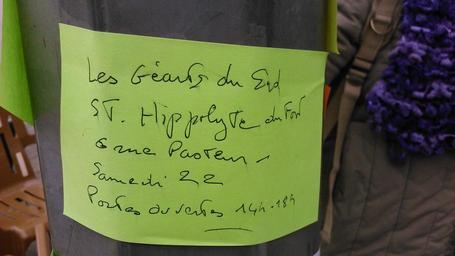 Les Géants du Sud
ST. Hippolyte du Fort
6 rue Pasteur
Samedi 22
Portes ouvertes 14h-18h